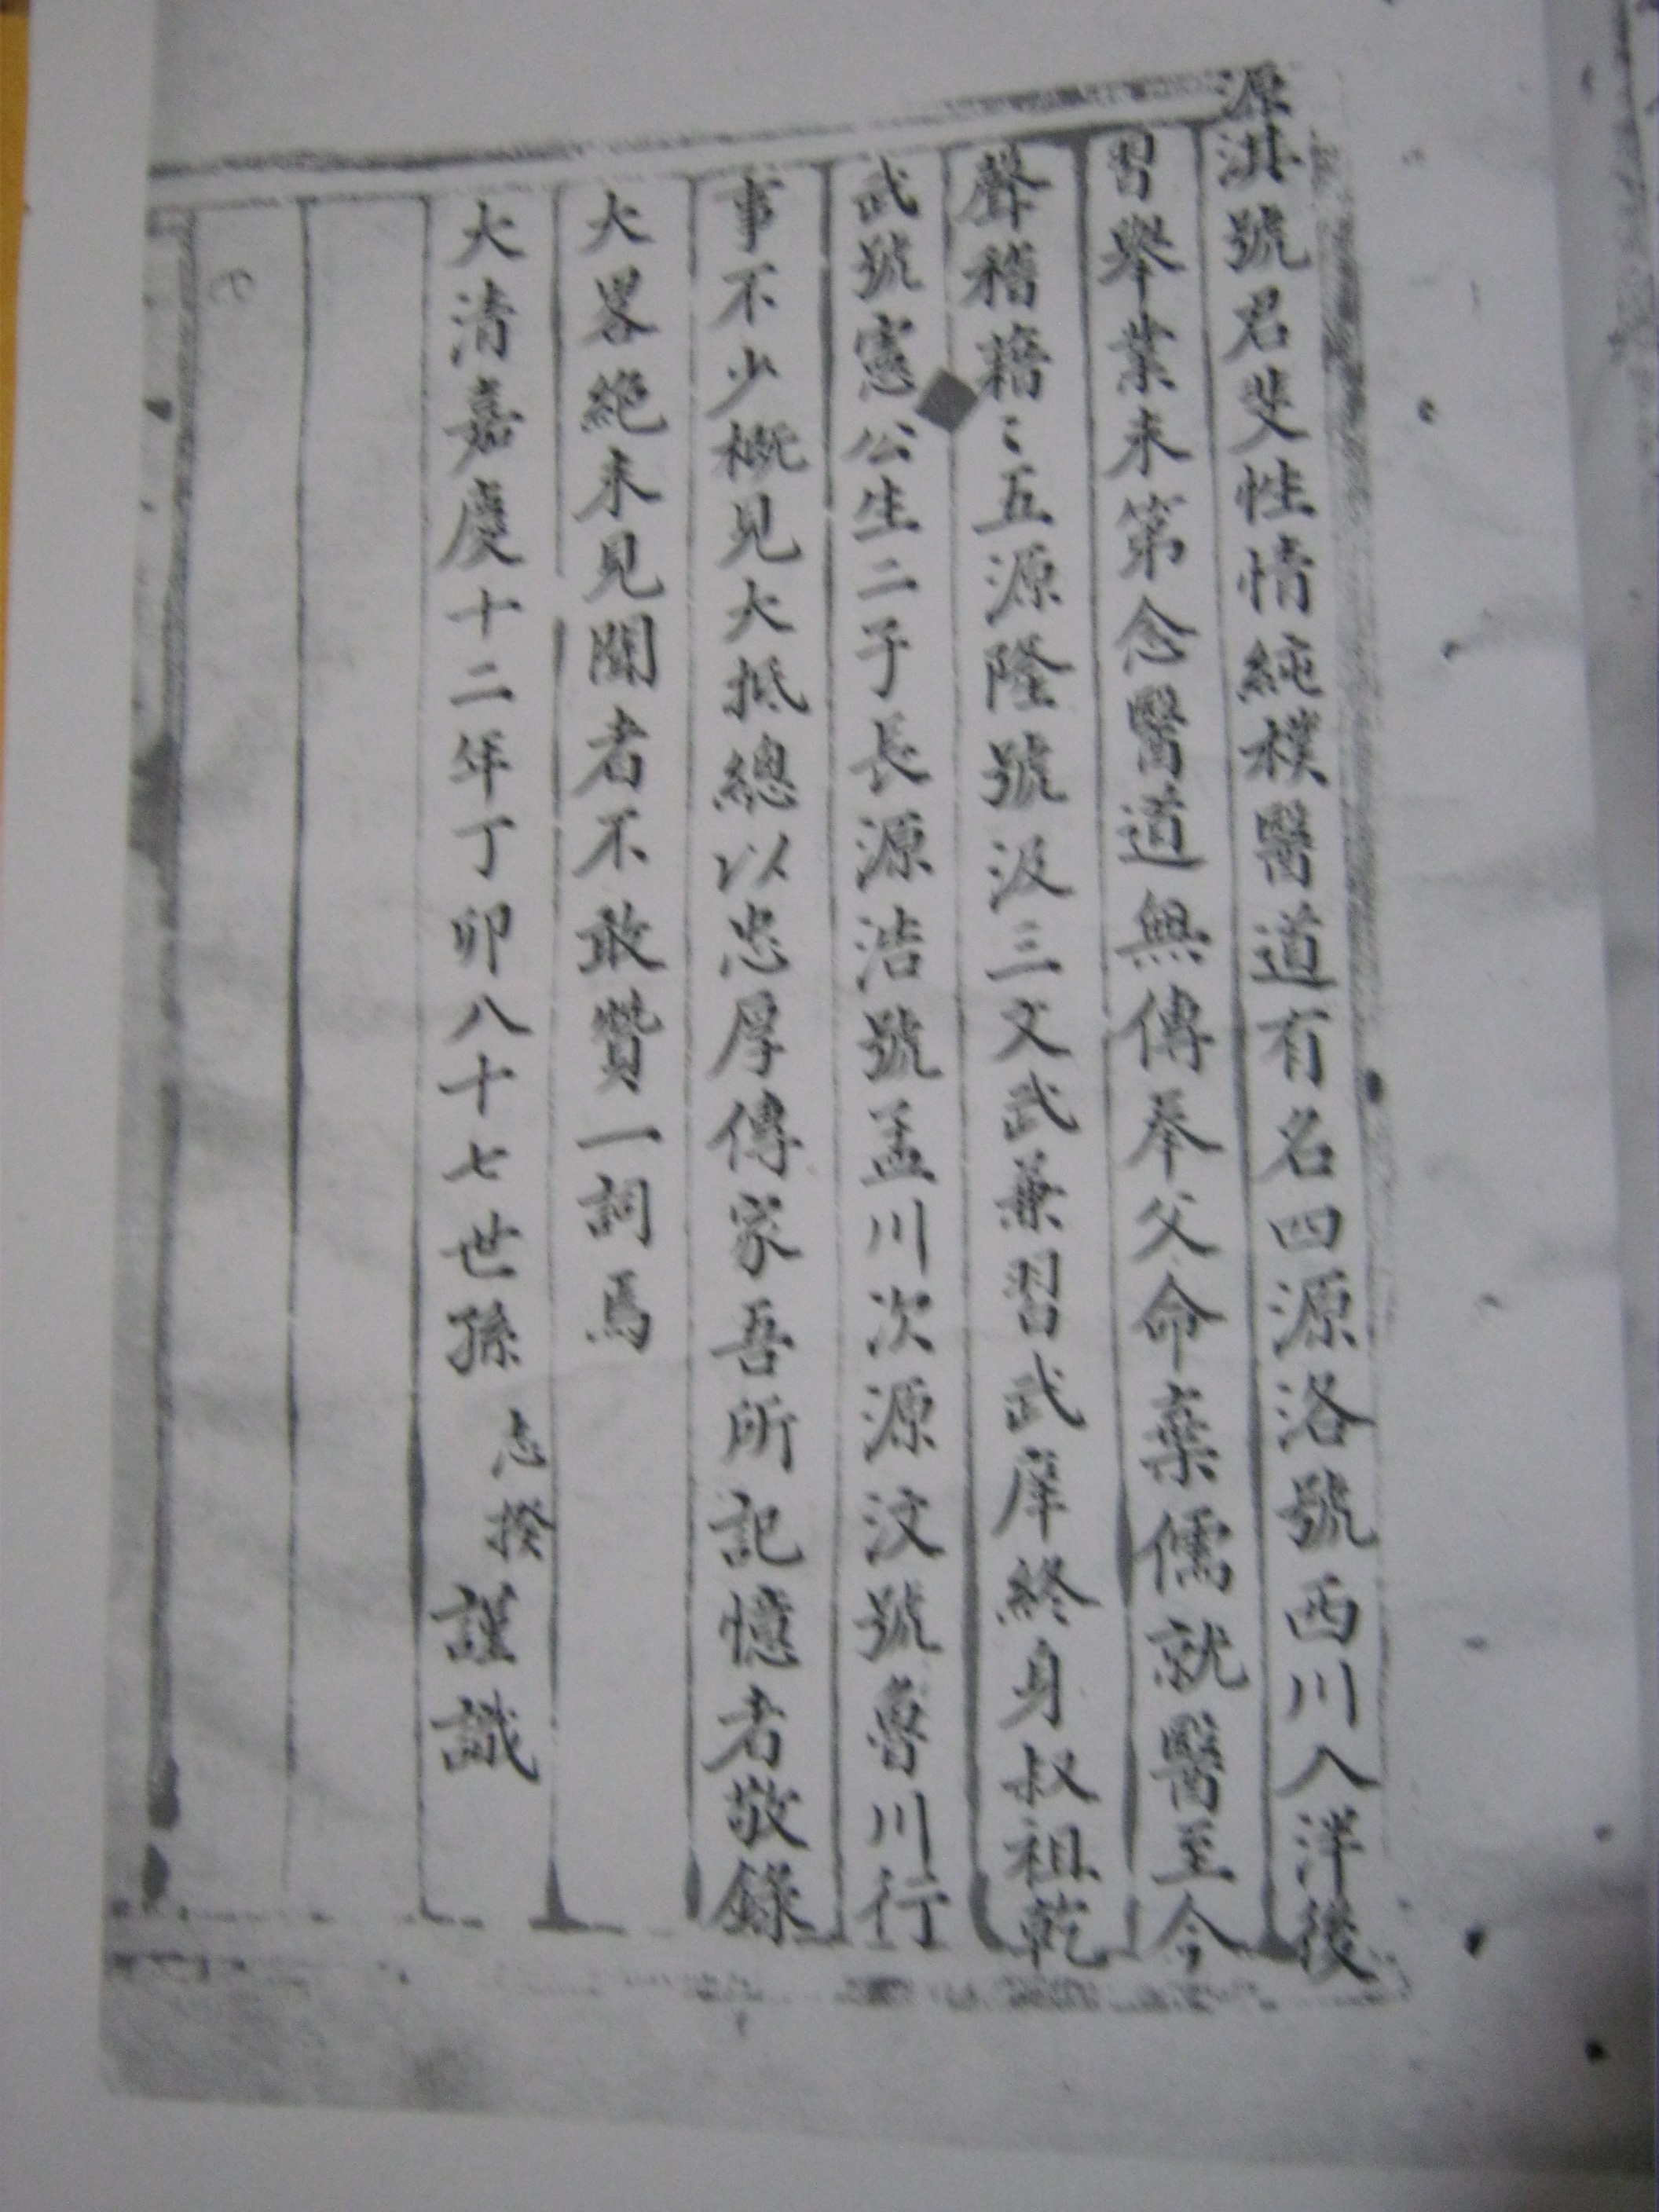 源淇號君斐性情純樸醫道有名四源洛號西川入泮後
習舉業未第念醫道無傳奉父命棄儒就醫至今
聲稱藉〻五源隆號汲三文武兼習武庠終身叔祖乾
武號憲公生二子長源浩號孟川次源汶號魯川行
事不少概見大抵總以忠厚傳家吾所記憶者敬錄
大畧絶未見聞者不敢贊一詞焉
大清嘉慶十二年丁卯八十七世孫志揆謹識